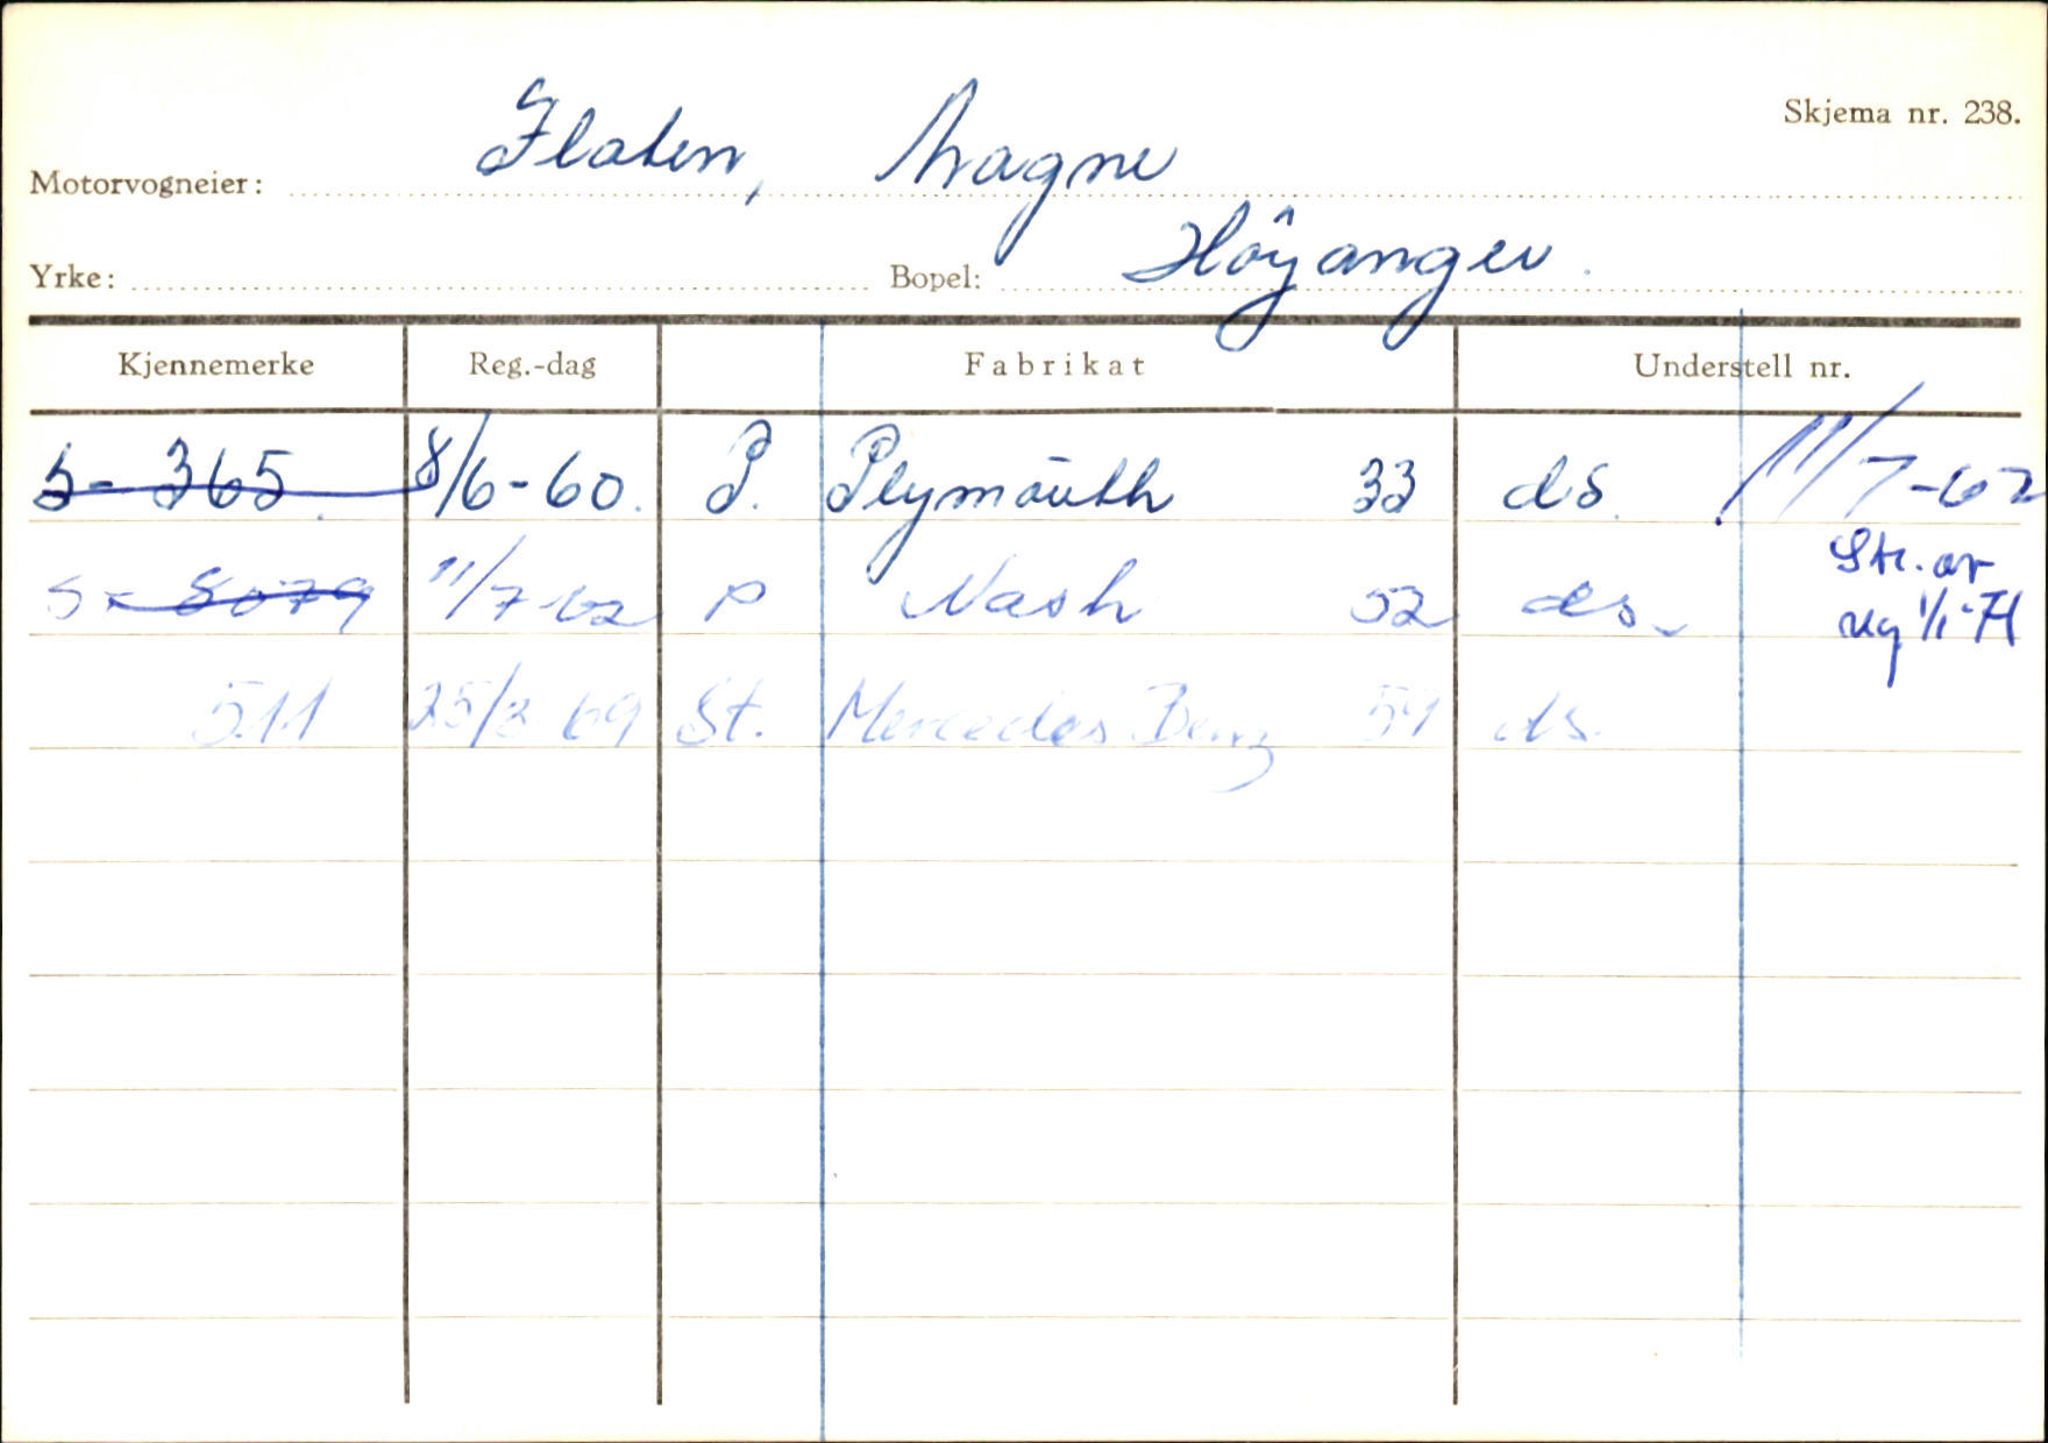 Skjema nr. 238.
Motorvogneier: Flaten, Magne
Yrke: Bopel: Höyanger
Kjennemerke Reg.-dag Fabrikat Understell nr.
S- 365 8/6-60. P. Plymouth 33 ds. 11/7-62
S- 8079 11/7-62 P Nash 52 ds. Str. av
reg 1/1-71
511 25/3 69 St. Mercedes Benz ds.